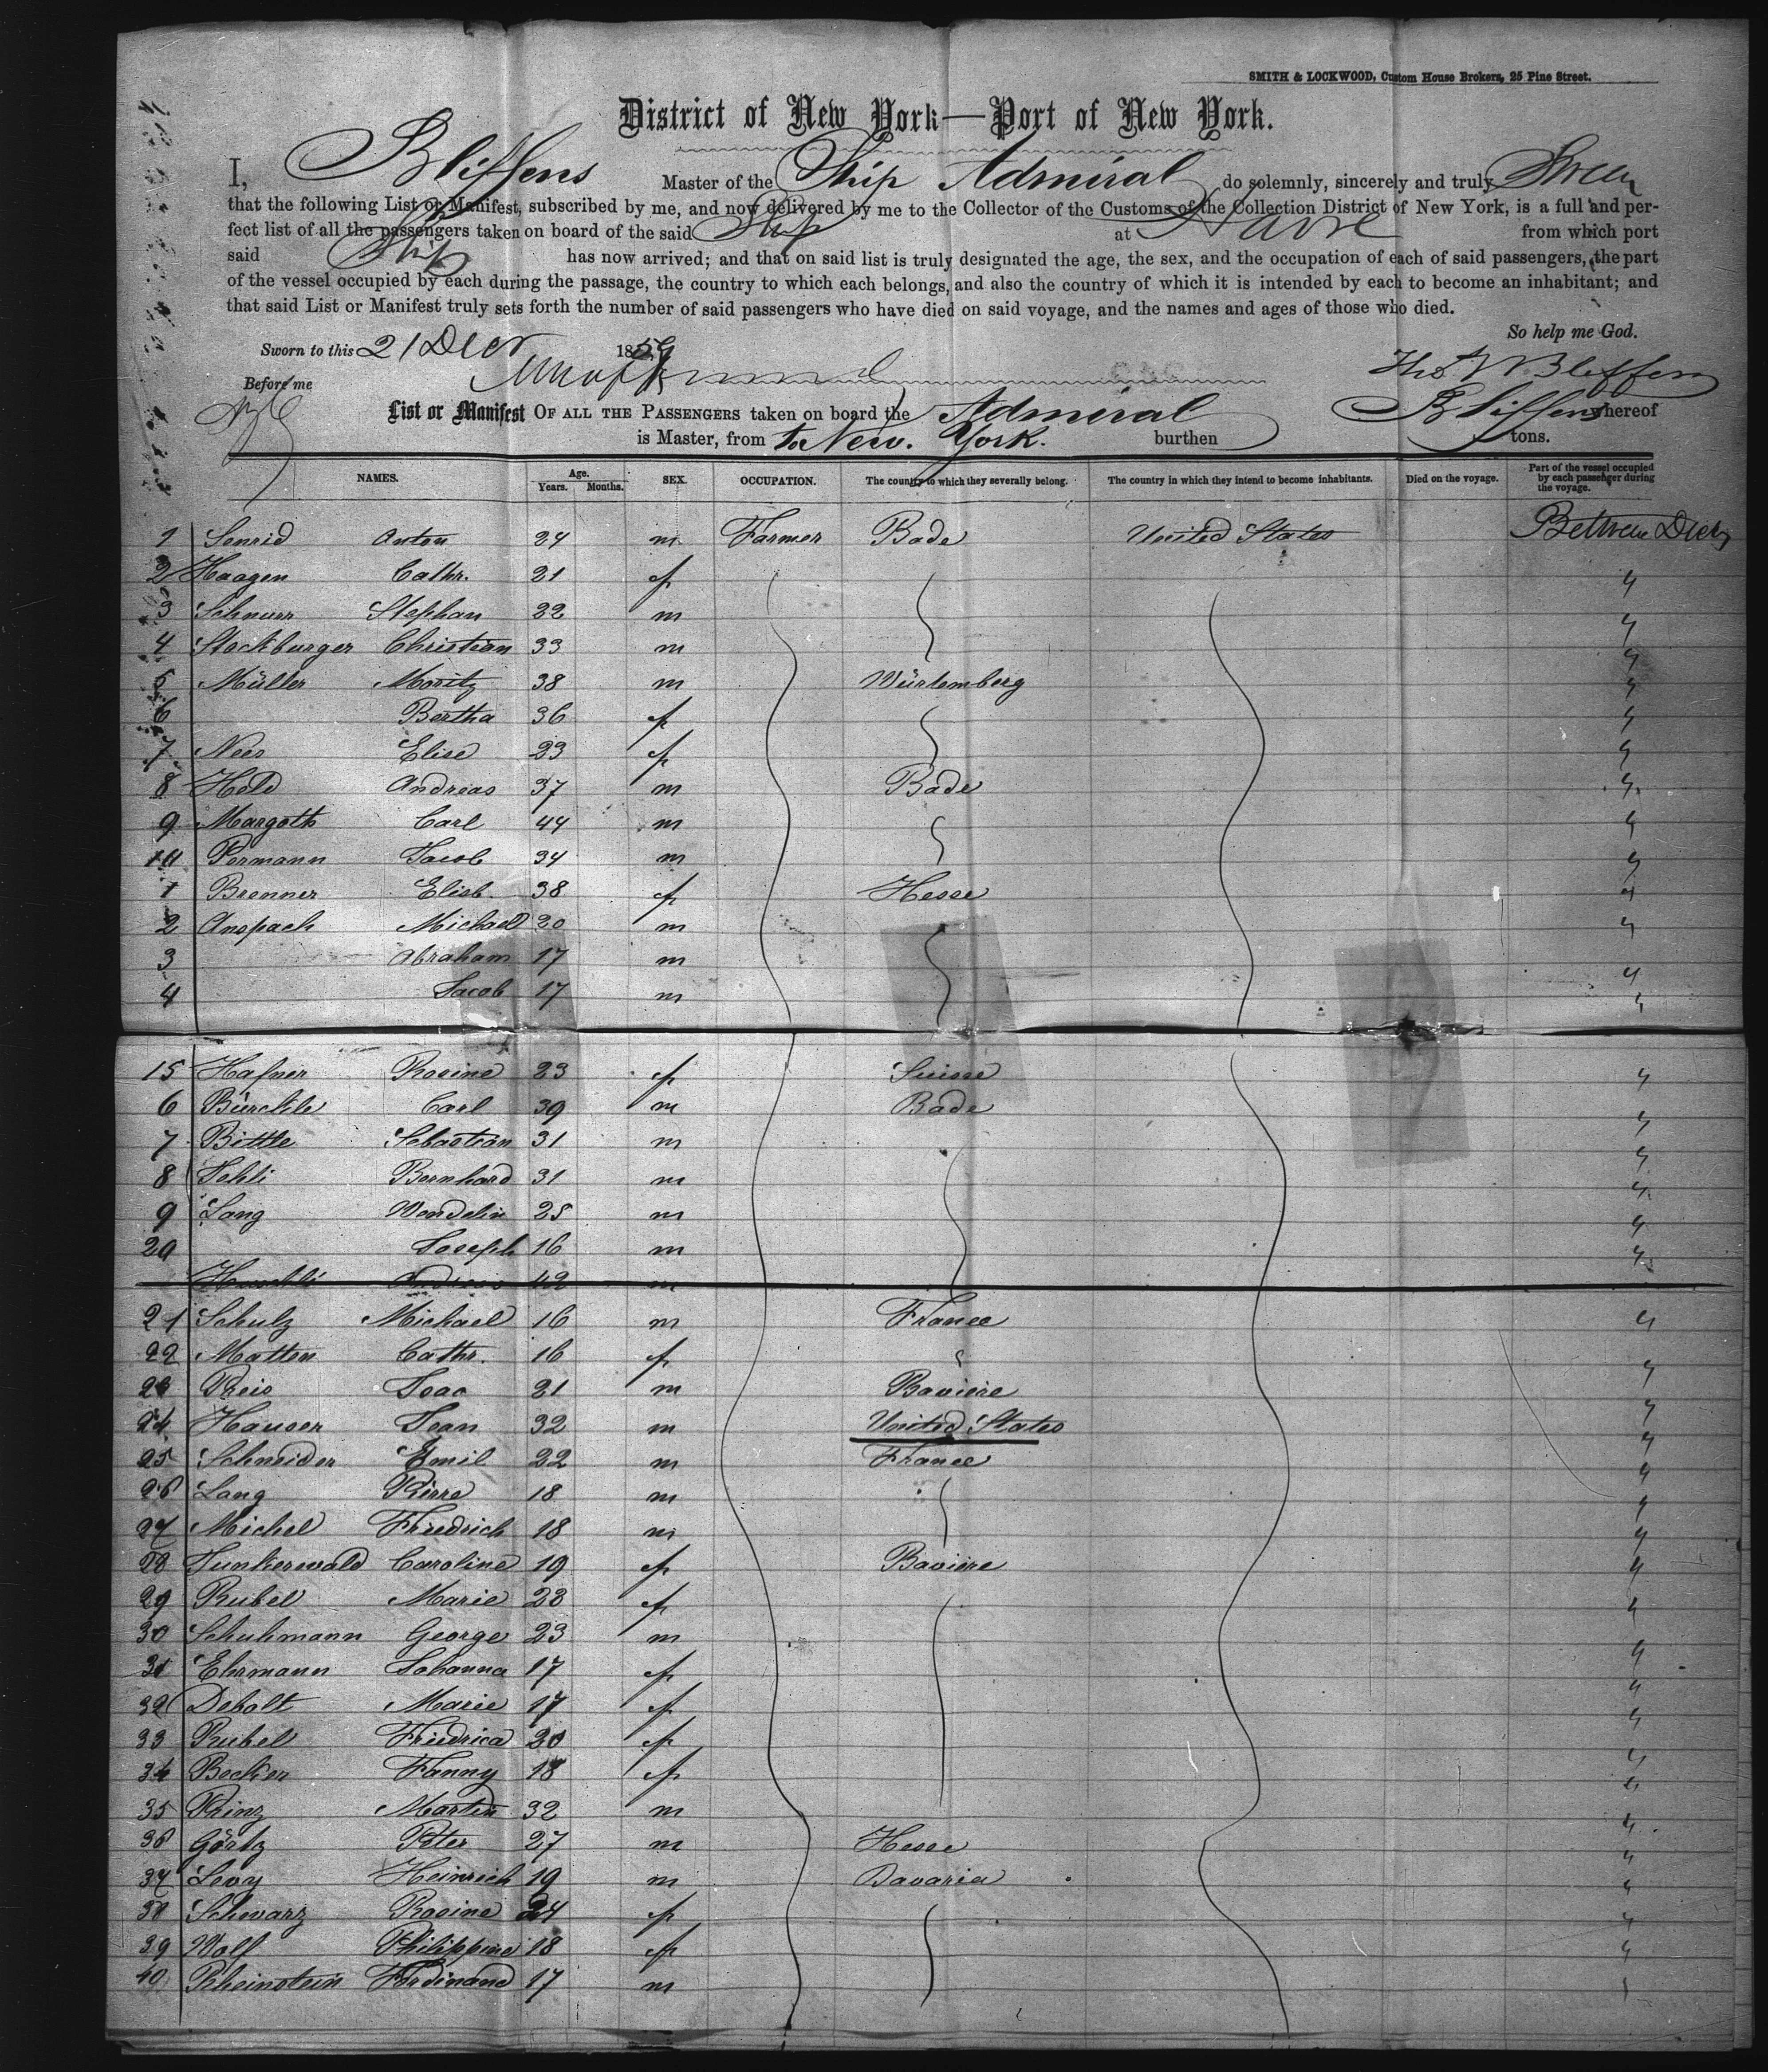 SMITH & LOCKWOOD, Custom House Brokers, 25 Pine Street.
District of New York—Port of New York.
I, Bliffens Master of the Ship Admiral do solemnly, sincerely and truly Swear
that the following List or Manifest, subscribed by me, and now delivered by me to the Collector of the Customs of the Collection District of New York, is a full and per-
fect list of all the passengers taken on board of the said Ship at Havre from which port
said Ship has now arrived; and that on said list is truly designated the age, the sex, and the occupation of each of said passengers, the part
of the vessel occupied by each during the passage, the country to which each belongs, and also the country of which it is intended by each to become an inhabitant; and
that said List or Manifest truly sets forth the number of said passengers who have died on said voyage, and the names and ages of those who died.
So help me God.
Sworn to this 21 Decr 1859
Before me
List or Manifest OF ALL THE PASSENGERS taken on board the Admiral Bliffens whereof
is Master, from to New York. burthen tons.
NAMES. Age. Years. Months. SEX. OCCUPATION. The country to which they severally belong. The country in which they intend to become inhabitants. Died on the voyage. Part of the vessel occupied by each passenger during the voyage.
1 Senrid Anton 24 m Farmer Bade United States Between Decks
2 Haagen Cathr. 21 f "
3 Schnurr Stephan 22 m "
4 Stockburger Christian 33 m "
5 Müller Moritz 38 m Würtemberg "
6 Bertha 36 f "
7 Nees Elise 23 f "
8 Hold Andreas 37 m Bade "
9 Margoth Carl 44 m "
10 Permann Jacob 34 m "
1 Brenner Elisb. 38 f Hesse "
2 Anspach Michael 20 m "
3 Abraham 17 m "
4 Jacob 17 m "
15 Hafner Rosine 23 f Suisse "
6 Bürckle Carl 39 m Bade "
7 Bittle Sebastian 31 m "
8 Sehli Bernhard 31 m "
9 Lang Wendelin 25 m "
20 Joseph 16 m "
Andreas 42 m
21 Schulz Michael 16 m France "
22 Matten Cathr. 16 f "
23 Reis Isac 21 m Baviere "
24 Hauser Jean 32 m United States "
25 Schneider Emil 22 m France "
26 Lang Pierre 18 m "
27 Michel Friedrich 18 m "
28 Funkerwald Caroline 19 f Baviere "
29 Rubel Marie 23 f "
30 Schuhmann George 23 m "
31 Ehrmann Johanna 17 f "
32 Debolt Marie 17 f "
33 Rubel Friedrica 20 f "
34 Becker Fanny 18 f "
35 Prinz Martin 32 m "
36 Görtz Peter 27 m Hesse "
37 Levy Heinrich 19 m Bavaria "
38 Schwarz Rosine 24 f "
39 Wolf Philippine 18 f "
40 Rheinstein Ferdinand 17 m "